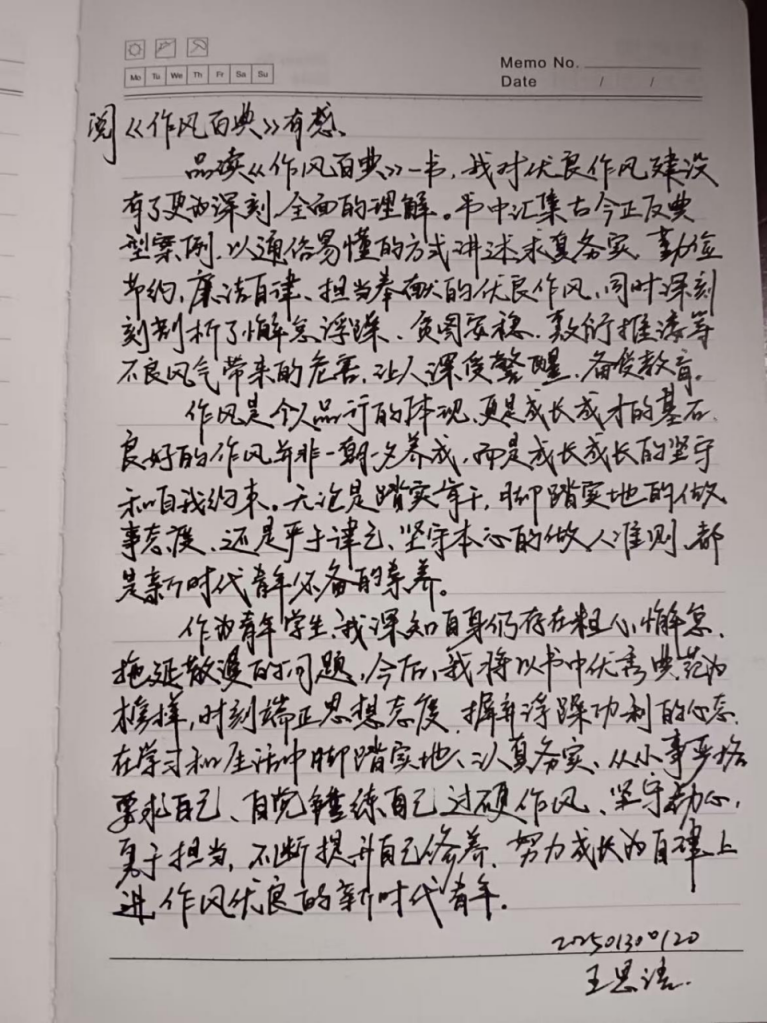 Mo Tu We Th Fr Sa Su
Memo No.
Date / /
阅《作风百典》有感、
品读《作风百典》一书,我对优良作风建设
有了更为深刻、全面的理解。书中汇集古今正反典
型案例,以通俗易懂的方式讲述求真务实、勤俭
节约、廉洁自律、担当奉献的优良作风,同时深刻
刻剖析了懈怠浮躁、贪图安稳、敷衍推诿等
不良风气带来的危害,让人深受警醒、备受教育。
作风是个人品行的体现,更是成长成才的基石,
良好的作风并非一朝一夕养成,而是成长成长的坚守
和自我约束。无论是踏实肯干、脚踏实地的做
事态度、还是严于律己、坚守本心的做人准则、都
是新时代青年必备的素养。
作为青年学生,我深知自身仍存在粗心、懈怠、
拖延散漫的问题,今后,我将以书中优秀典范为
榜样,时刻端正思想态度,摒弃浮躁功利的心态,
在学习和生活中脚踏实地、认真务实、从小事严格
要求自己、自觉锤练自己过硬作风、坚守初心,
勇于担当,不断提升自己修养,努力成长为自律上
进、作风优良的新时代青年。
202501300120
王思语.